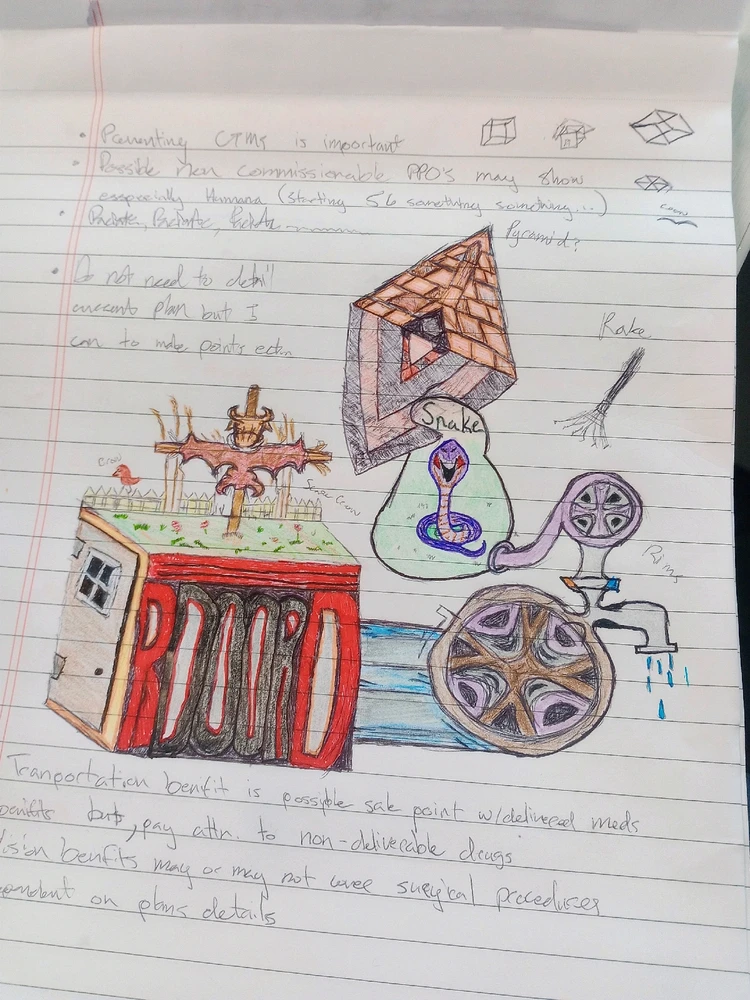 • Parenting CTMs is important
• Possible non commissionable PPO's may show
esspecially Humana (starting 56 something something...)
• Do not need to detail
current plan but I
can to make points ectn
Pyramid?
Rake
Snake
Crow
Rims
Tranportation benifit is possible sale point w/delivered meds
benifits but, pay attn. to non-deliverable drugs
Vision benfits may or may not cover surgical procedures
dependent on plans details